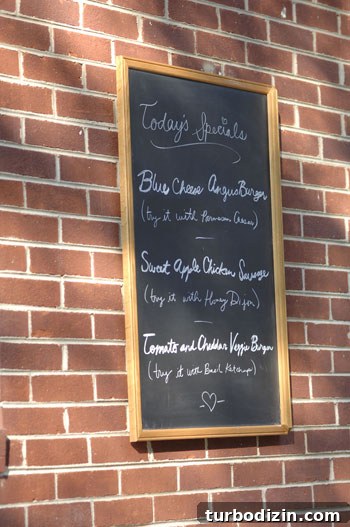 Today's Specials
Blue Cheese Angus Burger
(try it with Parmesan Cheese)
Sweet Apple Chicken Sausage
(try it with Honey Dijon)
Tomato and Cheddar Veggie Burger
(try it with Basil Ketchup)
turbodizin.com